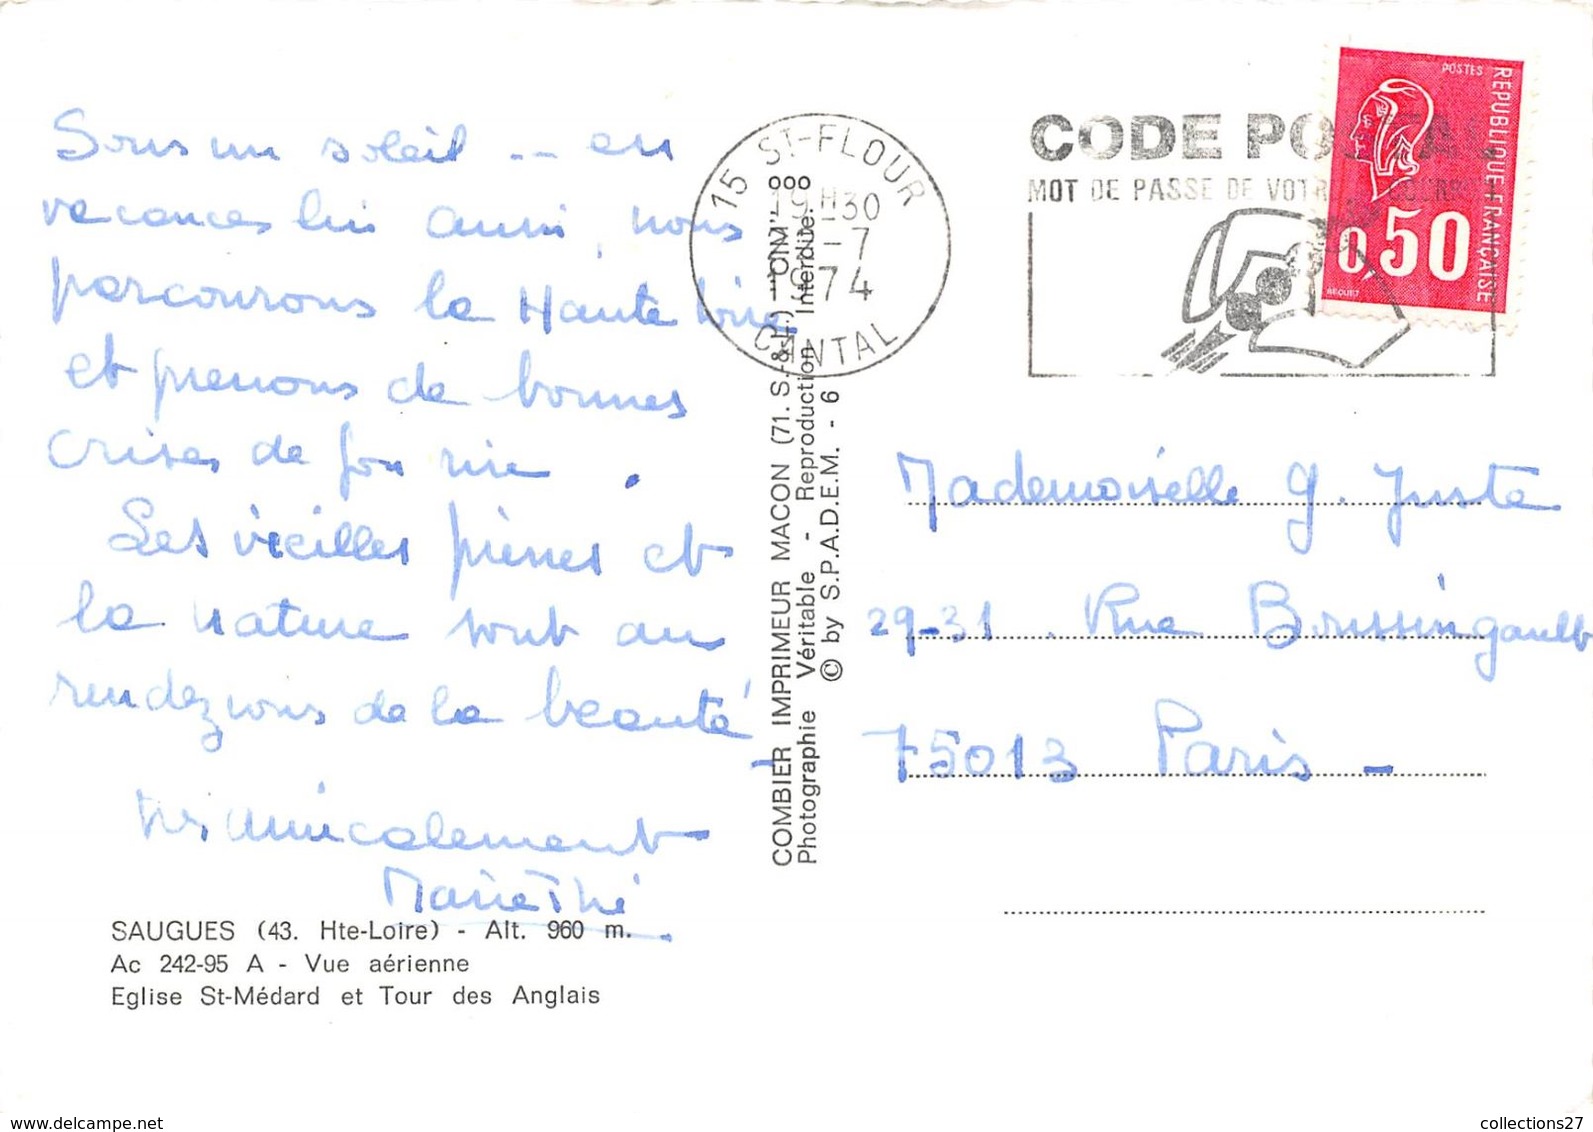 Sous un soleil -- en
vacances lui aussi, nous
parcourons la Haute Loire
et prenons de bonnes
crises de fou rire.
Les vieilles pierres et
la nature sont au
rendez vous de la beauté
Très amicalement
Marie Thé
SAUGUES (43. Hte-Loire) - Alt. 960 m.
Ac 242-95 A - Vue aérienne
Eglise St-Médard et Tour des Anglais
COMBIER IMPRIMEUR MACON (71. S.-&-L.) "CIM"
Photographie Véritable - Reproduction Interdite.
© by S.P.A.D.E.M. - 6
15 ST-FLOUR
19H30
-7
1974
CANTAL
CODE POSTAL
MOT DE PASSE DE VOTRE
POSTES
REPUBLIQUE FRANÇAISE
0,50
BEQUET
Mademoiselle G. Juste
29-31 Rue Boussingault
75013 Paris -
collections27